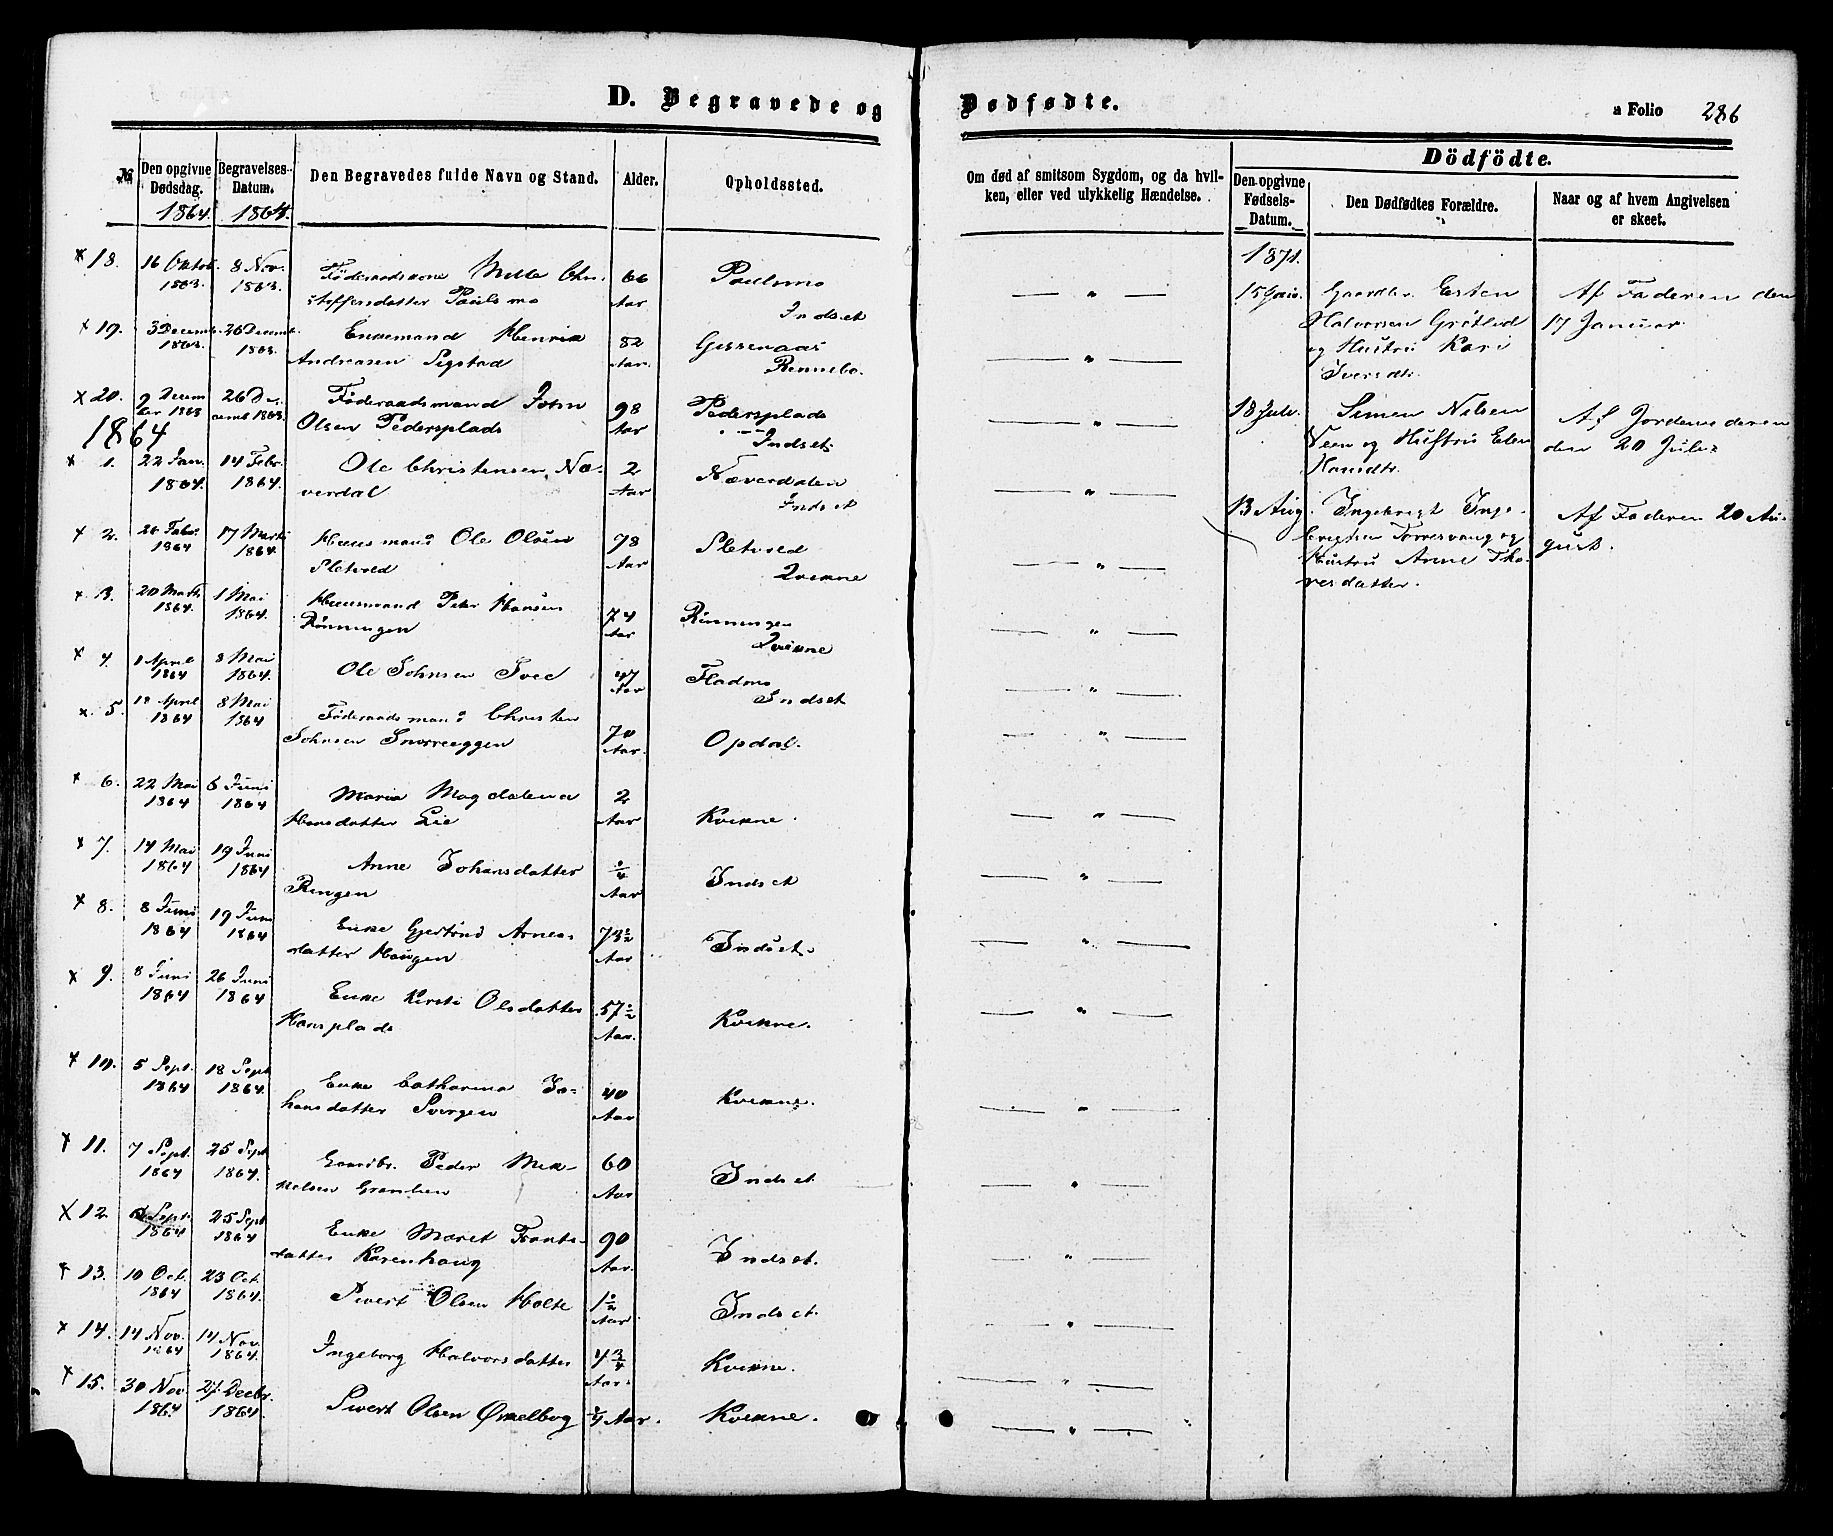 D. Begravede og Dødfødte.
a Folio 286
№
Den opgivne Dødsdag.
1864.
Begravelses-Datum.
1864.
Den Begravedes fulde Navn og Stand.
Alder.
Opholdssted.
Om død af smitsom Sygdom, og da hvil-
ken, eller ved ulykkelig Hændelse.
Dödfödte.
Den opgivne Fødsels-Datum.
Den Dødfødtes Forældre.
Naar og af hvem Angivelsen er skeet.
18. 16 Oktob. 1863. 8 Nov. 1863. Föderaadskone Mille Chri- 66 Aar Paulsmo
stoffersdatter Paulsmo Indset
19. 3 Decemb. 1863. 26 Decemb. 1863. Enkemand Henrik 82 Aar.
Andreasen Segstad Rennebo.
20. 9 Decem ber 1863 26 De- cemb 1863. Föderaadsmand John 98 Aar Pedersplads
Olsen Pedersplads Indset
1864
1. 22 Jan. 1864. 14 Febr. 1864. Ole Christensen Næ- 2 Aar Næverdalen
verdal Indset
2. 28 Febr. 1864 17 Marts 1864. Huusmand Ole Olsen 78 Aar Sletvold
Sletvold Qvikne
3. 20 Marts 1864. 1 Mai 1864. Huusmand Peter Hansen 74 Aar Rönningen
Rönningen Qvikne
4. 1 April 1864 8 Mai 1864. Ole Johnsen Svee 47 Aar Fladmo
Indset
5. 18 April 1864 8 Mai 1864 Föderaadsmand Christen 70 Aar. Opdal.
Johnsen Snorreeggen
6. 22 Mai 1864 6 Juni 1864 Maria Magdalena 2 Aar Kvikne.
Hansdatter Lie
7. 14 Mai 1864 19 Juni 1864 Anne Johansdatter 1/4 Aar Indset
Ringen
8. 8 Juni 1864 19 Juni 1864 Enke Gjertrud Arnes- 73 1/2 Aar Indset.
datter Haugen
9. 8 Juni 1864 26 Juni 1864 Enke Kirsti Olsdatter 57 1/2 Aar. Kvikne.
Hansplads
10. 5 Sept. 1864 18 Sept 1864 Enke Catharina Jo- 40 Aar Kvikne.
hansdatter Svergen
11. 7 Sept. 1864 25 Sept 1864. Gaardbr. Peder Mik- 60 Aar Indset.
kelsen Gramhen
12. Sept. 1864 25 Sept 1864 Enke Maret Frants- 90 Aar. Indset.
datter Karenhaug
13. 10 Oct. 1864 23 Oct. 1864. Sivert Olsen Holte 1 1/2 Aar Indset.
14. 14 Nov. 1864 14 Nov. 1864. Ingeborg Halvorsdatter 4 3/4 Aar. Kvikne.
15. 30 Nov. 1864 27 Decbr. 1864. Sivert Olsen Ørkelbog 1/4 Aar. Kvikne.
1871.
15 Janv. Gaardbr. Esten Af Faderen den
Halvorsen Grötlid 17 Januar.
og Hustru Kari
Iversdtr.
18 Juli. Simen Nilsen Af Jordemoderen
Veen og Hustru Elen den 20 Juli.
Hansdtr.
13 Aug. Ingebrigt Inge- Af Faderen 20 Au-
brigtsen Torresvang og gust.
Hustru Anne Tho-
resdatter.